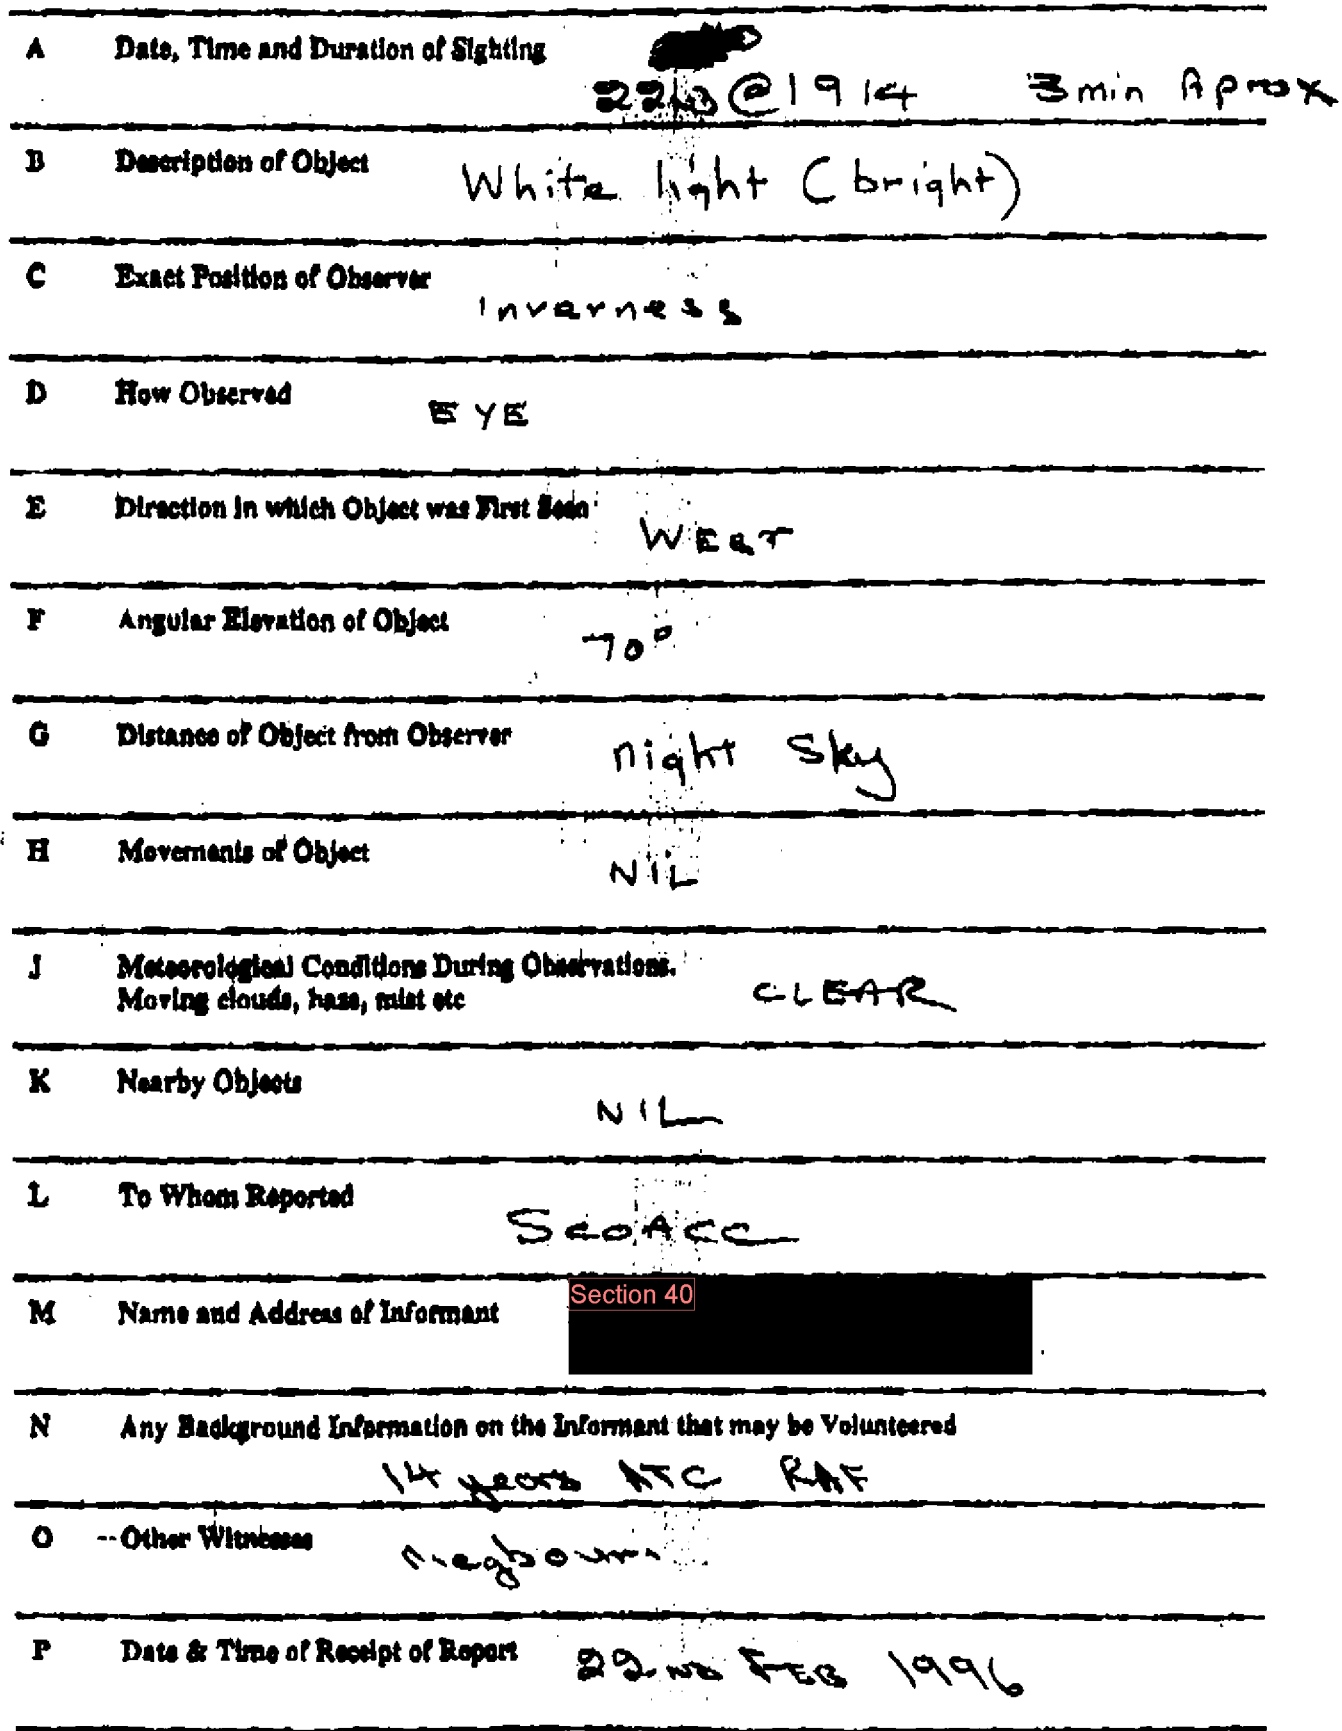 A Date, Time and Duration of Sighting
22nd @ 1914 3 min Aprox
B Description of Object White light (bright)
C Exact Position of Observer
Inverness
D How Observed EYE
E Direction in which Object was First Seen
WEST
F Angular Elevation of Object
70°
G Distance of Object from Observer night Sky
H Movements of Object
NIL
J Meteorological Conditions During Observations.
Moving clouds, haze, mist etc CLEAR
K Nearby Objects
NIL
L To Whom Reported
ScoACC
Section 40
M Name and Address of Informant
N Any Background Information on the Informant that may be Volunteered
14 years ATC RAF
O -- Other Witnesses
P Date & Time of Receipt of Report 22ND FEB 1996